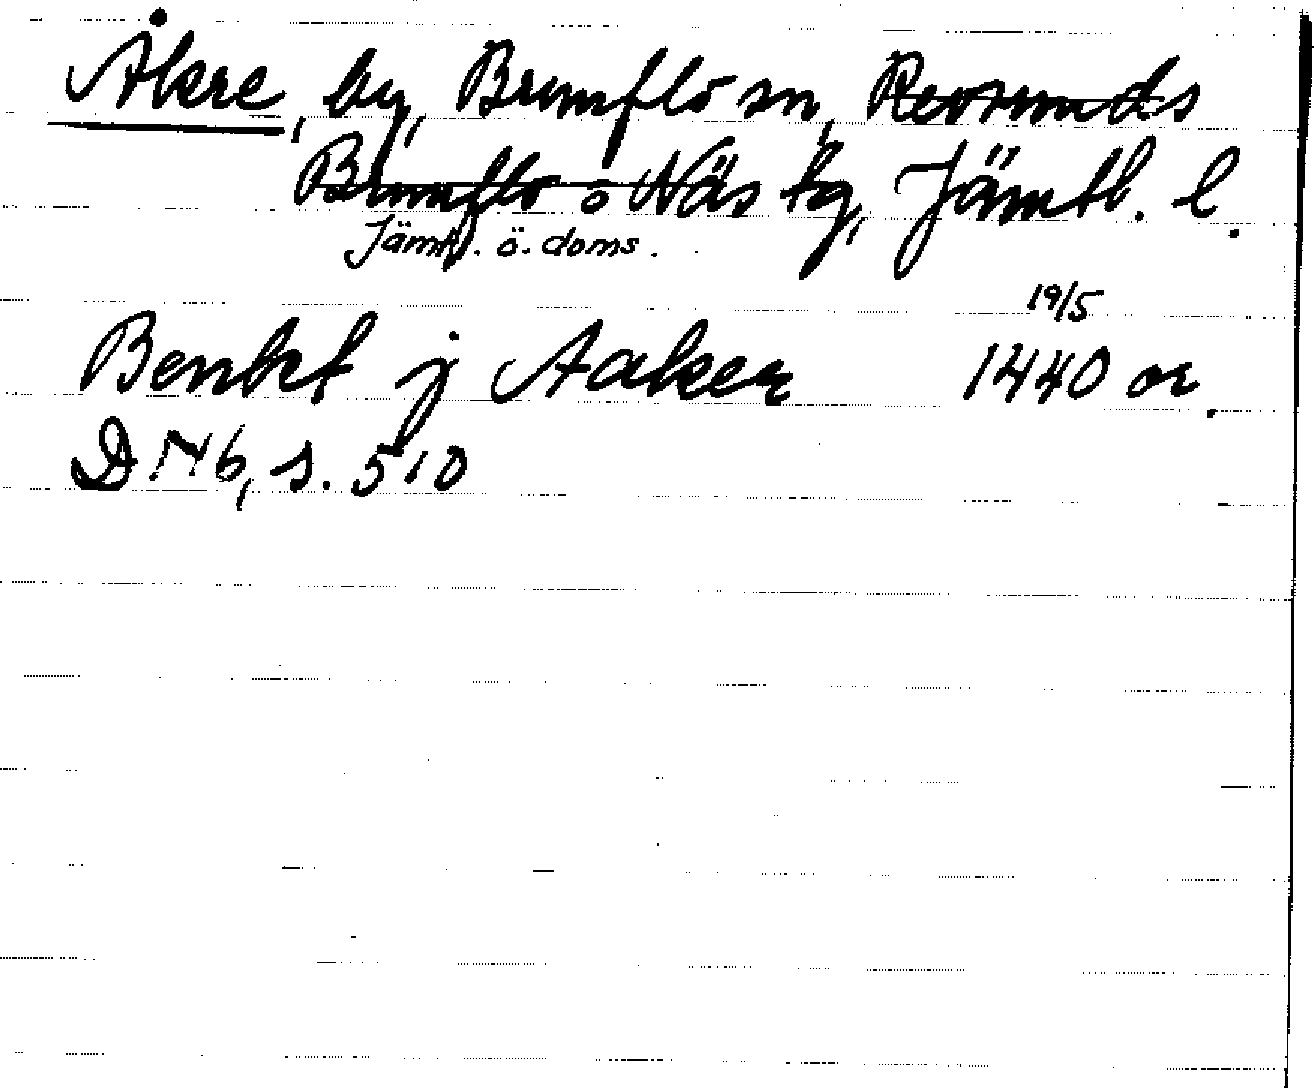 Åkre, by, Brunflo sn, Revsunds
Brunflo o Näs tg, Jämtl. l.
Jämtl. ö. doms.
19/5
Benkt j Aaker 1440 or.
DN 16, s. 510